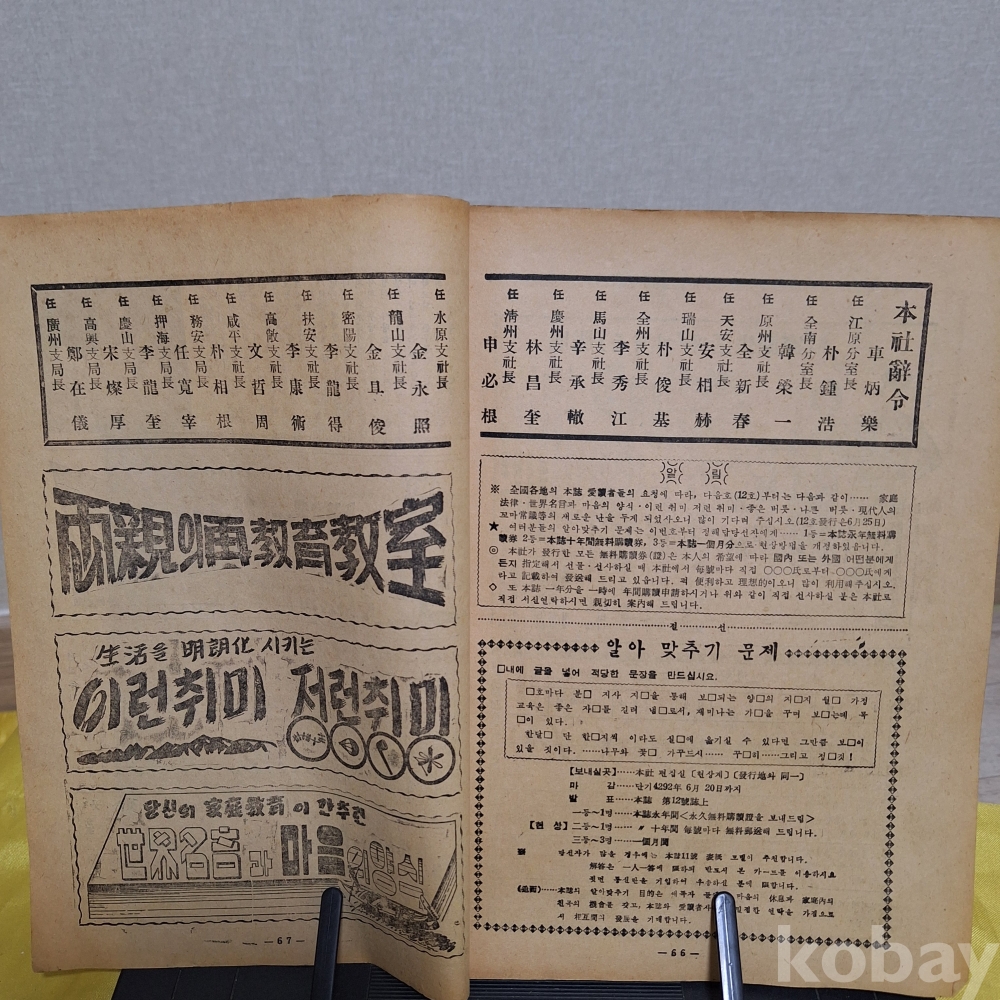 本社辭令
任 江原分室長 車炳樂
任 全南分室長 朴鍾浩
任 原州支社長 韓榮一
任 天安支社長 全新春
任 瑞山支社長 安相赫
任 全州支社長 朴俊基
任 馬山支社長 李秀江
任 慶州支社長 辛承轍
任 淸州支社長 林昌奎
申必根
任 水原支社長 金永照
任 龍山支社長 金且俊
任 密陽支社長 李龍得
任 扶安支社長 李康術
任 高敞支社長 文哲周
任 咸平支社長 朴相根
任 務安支局長 任寬宰
任 押海支局長 李龍奎
任 慶山支局長 宋燦厚
任 高興支局長 鄭在儀
任 廣州支局長
알 림
※ 全國各地의 本誌 愛讀者들의 요청에 따라, 다음호(12호)부터는 다음과 같이…… 家庭
法律·世界名言과 마음의 양식·이런 취미 저런 취미·좋은 버릇·나쁜 버릇·現代人의
꼬마常識등의 새로운 난을 두게 되었사오니 많이 기다려 주십시오(12호發行은6月25日)
★ 여러분들의 알아맞추기 문제는 이번호부터 정해답당선자에게…… 1등=本誌永年無料購
讀券 2등=本誌十年間無料購讀券, 3등=本誌一個月分으로 현상방법을 개정하였습니다.
◎ 本社가 발행한 모든 無料購讀券(證)은 本人의 希望에 따라 國內 또는 外國 어떤분에게
든지 指定해서 선물·선사하실 때 本社에서 每號마다 직접 ○○○氏로부터─○○○氏에게
라고 記載하여 發送해 드리고 있읍니다. 퍽 便利하고 理想的이오니 많이 利用해주십시오.
◇ 또 本誌 一年分을 一時에 年間購讀申請하시거나 위와 같이 직접 선사하실 분은 本社로
직접 서신연락하시면 親切히 案內해 드립니다.
절 선
알아 맞추기 문제
□내에 글을 넣어 적당한 문장을 만드십시요.
□호마다 본□ 지사 지□을 통해 보□되는 양□의 지□지 월□ 가정
교육은 좋은 자□를 길러 냄□로서, 재미나는 가□을 꾸며 보□는데 목
□이 있다.
한달□ 단 한□지씩 이라도 실□에 옮기실 수 있다면 그만큼 보□이
있을 것이다. ……나무와 꽃□ 가꾸드시…… 꾸□히……그리고 정□것!
【보내실곳】……本社 편집실 【현상계】 【發行地와 同一】
마 감……단기4292年 6月 20日까지
발 표……本誌 第12號誌上
一등~1명………本誌永年間<永久無料購讀證을 보내드림>
【현 상】 二등~1명………〃 十年間 每號마다 無料郵送해 드립니다.
三등~3명………一個月間
당선자가 많을 경우에는 本誌11號 表紙 모델이 추첨합니다.
解答은 一人一答에 限하며 반드시 본 카─드를 이용하시요
(追而)……本誌의 알이맞추기 目的은 애독자 마음의 休息과 家庭內의
서 相互間의 發展을 기대합니다.
─66─
兩親의再教育教室
生活을 明朗化 시키는
이런취미 저런취미
당신의 家庭教育이 간추린
世界名言과 마음의양식
─67─
kobay